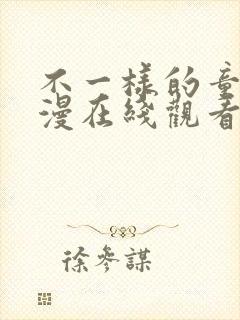 不一樣的童
漫在綫觀看
徐參謀